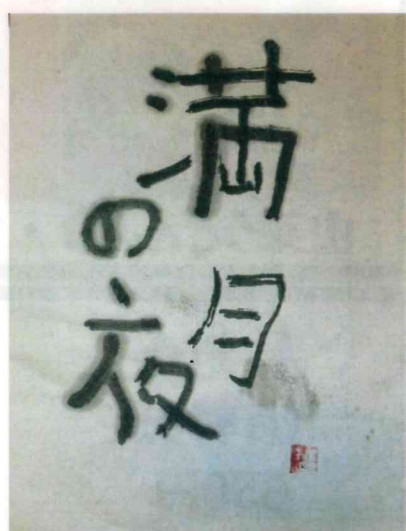 満月
の夜